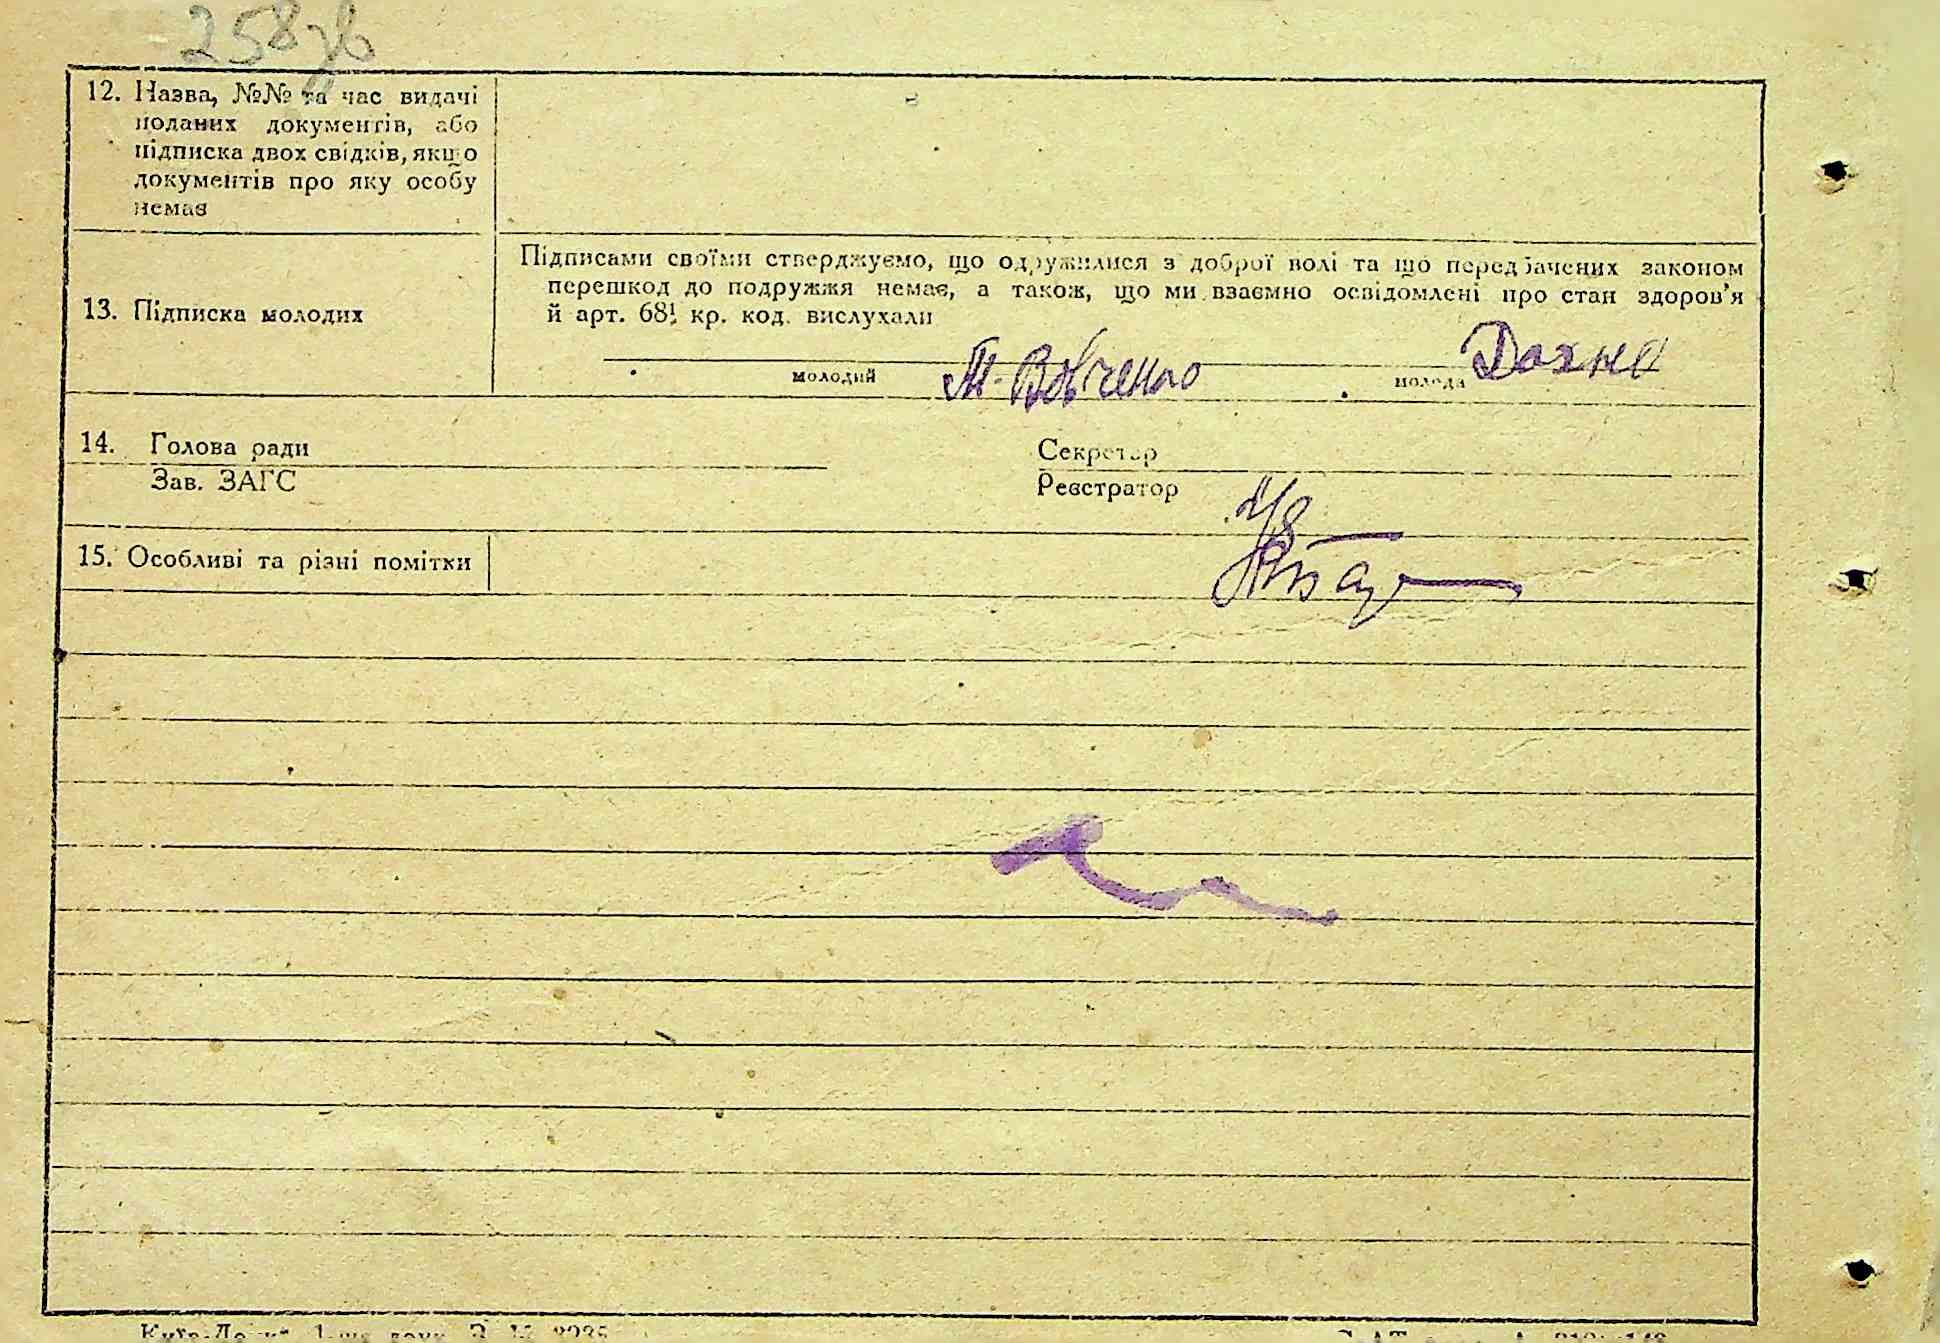 258зв
12. Назва, №№ та час видачі
поданих документів, або
підписка двох свідків, якщо
документів про яку особу
немає
13. Підписка молодих
Підписами своїми стверджуємо, що одружилися з доброї волі та що передбачених законом
перешкод до подружжя немає, а також, що ми взаємно освідомлені про стан здоров'я
й арт. 68¹ кр. код. вислухали
молодий Вовченко молода Дахно
14. Голова ради Секретар
Зав. ЗАГС Реєстратор
15. Особливі та різні помітки